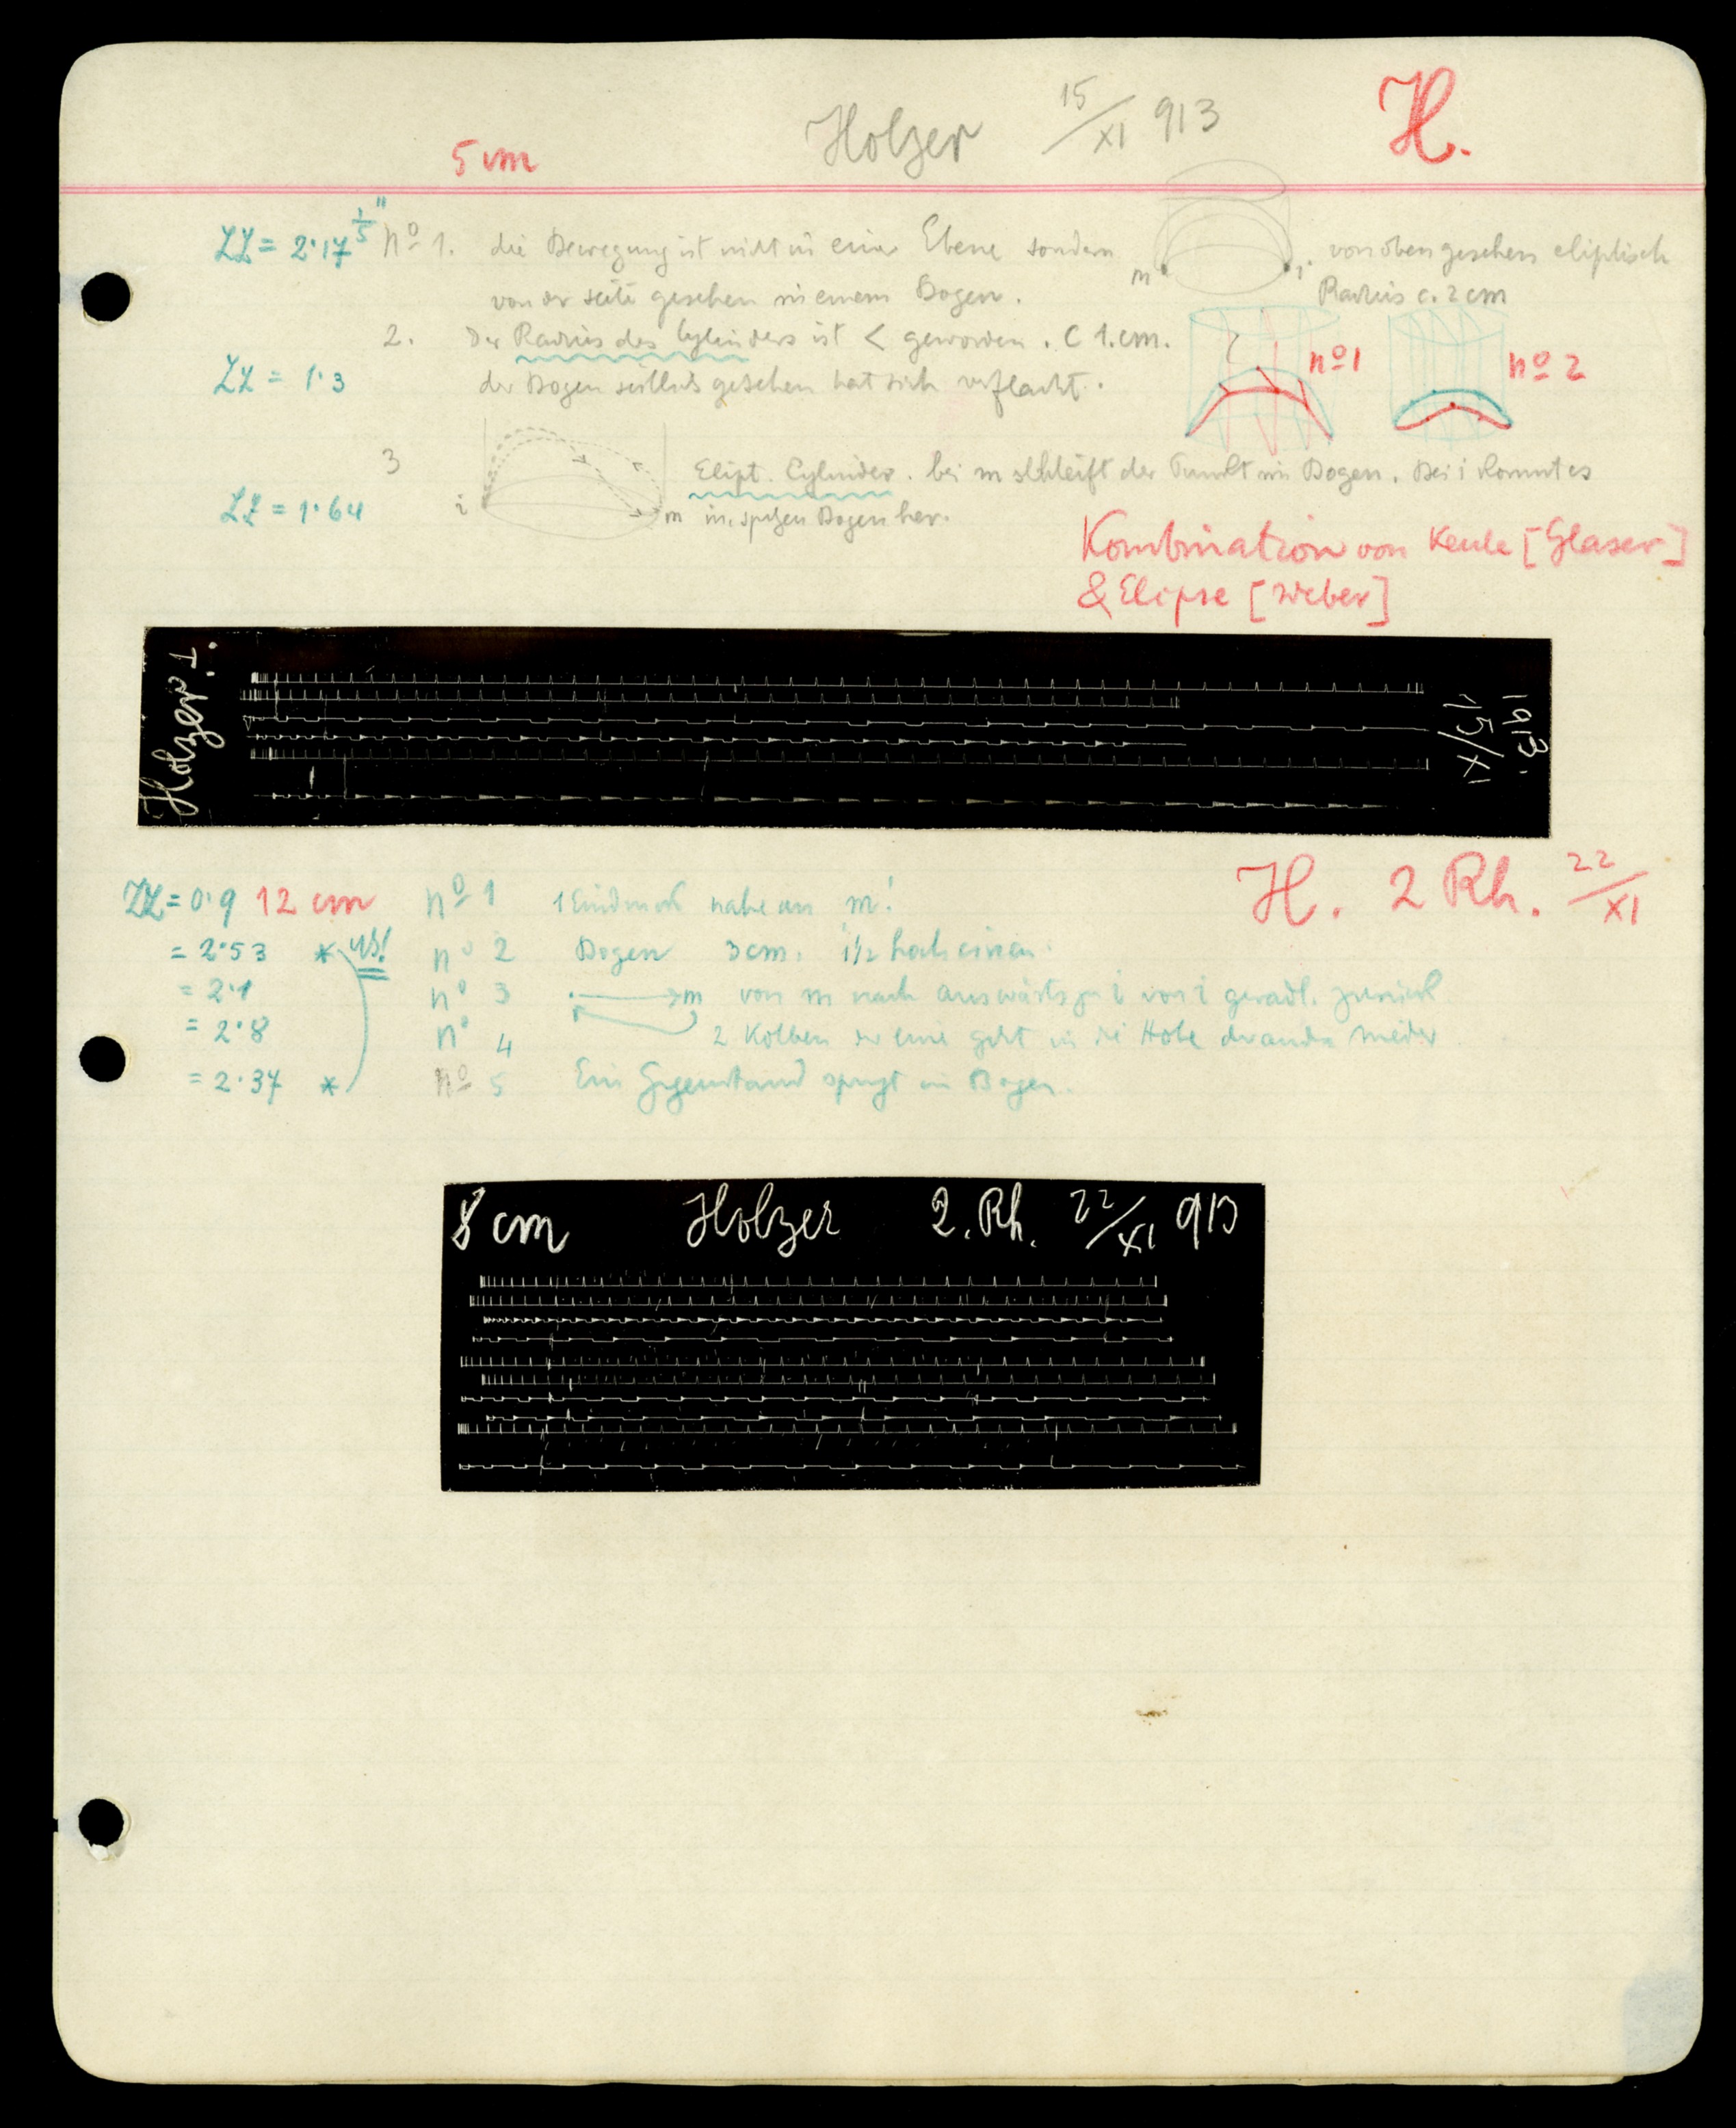 5 cm Holzer 15/XI 913 H.
ZZ = 2·17 1/5" nº 1. die Bewegung ist nicht in eine Ebene sondern m i von oben gesehen eliptisch
von der Seite gesehen in einem Bogen. Radius c. 2 cm
2. Der Radius des Cylinders ist < geworden. C 1.cm. nº1 nº 2
ZZ = 1·3 der Bogen seitlich gesehen hat sich verflacht.
3 Elipt. Cylinder. bei m schleift der Punkt im Bogen. Bei i kommt es
ZZ = 1·64 i m im spitzen Bogen her.
Kombination von Keule [Glaser]
& Elipse [Weber]
Holzer 1. 15/XI 1913.
ZZ = 0·9 12 cm nº 1 1 Eindruck nahe an m! H. 2 Rh. 22/XI
= 2·53 * nº 2 Bogen 3 cm. 1 1/2 hoch
= 2·1 nº 3 m von m nach auswärts zu i von i geradl. zurück
= 2·8 nº 4 2 Kolben der eine geht in die Höhe der andre nieder
= 2·37 * nº 5 Ein Gegenstand springt im Bogen.
8 cm Holzer 2. Rh. 22/XI 913